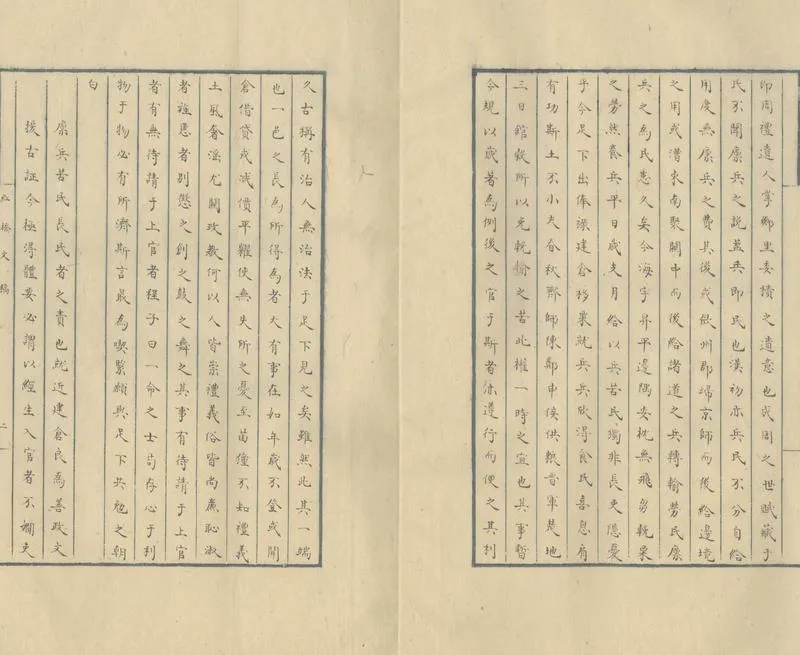 即周禮遺人掌鄉里委積之遺意也成周之世賦藏于
民不聞廩兵之說蓋兵即民也漢初亦兵民不分自給
用度無廩兵之費其後或歛州郡歸京師而後給邊境
之用或漕東南聚關中而後給諸道之兵轉輸勞民廩
兵之為民患久矣今海宇昇平邊隅安枕無飛芻輓粟
之勞然養兵平日歲支月給以兵苦民獨非長吏隱憂
乎今足下出俸祿建倉移粟就兵兵欣得食民喜息肩
有功斯土不小夫春秋齊師陳鄭申侯供執晉軍楚地
三日館穀所以免輓輸之苦此權一時之宜也其事暫
今規以歲著為例後之官于斯者亦遵行而便之其利
久古稱有治人無治法于足下見之矣雖然此其一端
也一邑之長為所得為者大有事在如年歲不登或開
倉借貸或減價平糶使無失所之憂至苗獞不知禮義
土風奢滛尤關政教何以人皆崇禮義俗皆尚廉恥淑
者旌惡者別懲之創之鼓之舞之其事有待請于上官
者有無待請于上官者程子曰一命之士苟存心于利
物于物必有所濟斯言最為喫緊願與足下共勉之朝
白
廩兵苦民長民者之責也就近建倉良為善政文
援古証今極得體要必謂以經生入官者不嫻吏
橋文稿 二